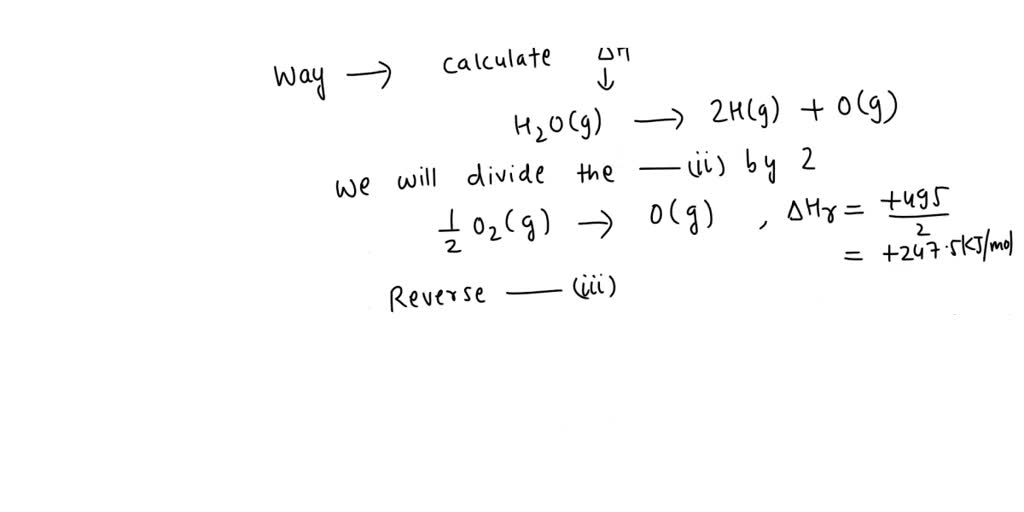 Way → Calculate ΔH
↓
H₂O(g) → 2H(g) + O(g)
We will divide the — (ii) by 2
½ O₂(g) → O(g) , ΔHr = +495/2
= +247.5KJ/mol
Reverse — (iii)